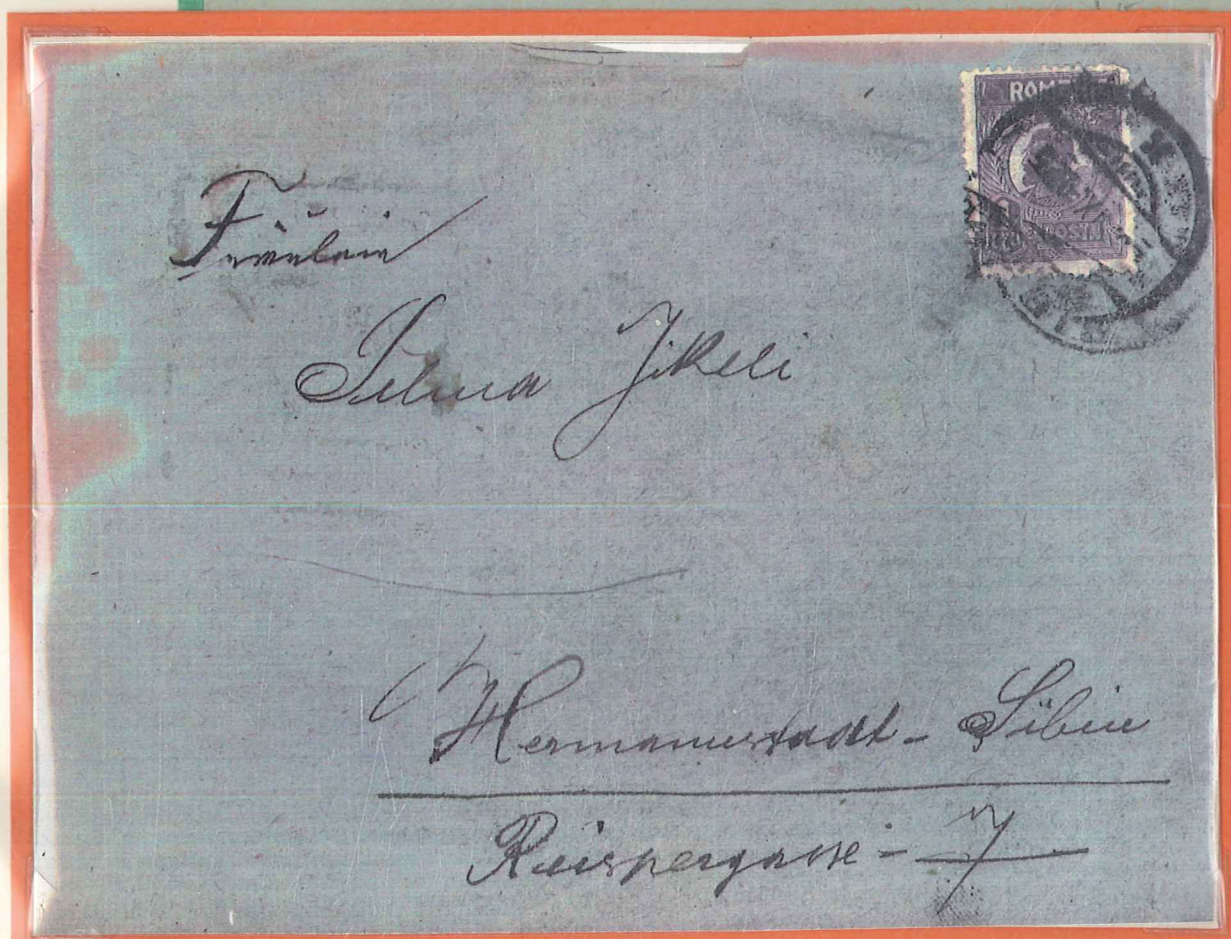 ROMANIA
POSTA
Fräulein
Selma Jikeli
Hermannstadt - Sibiu
Reispergasse - 7